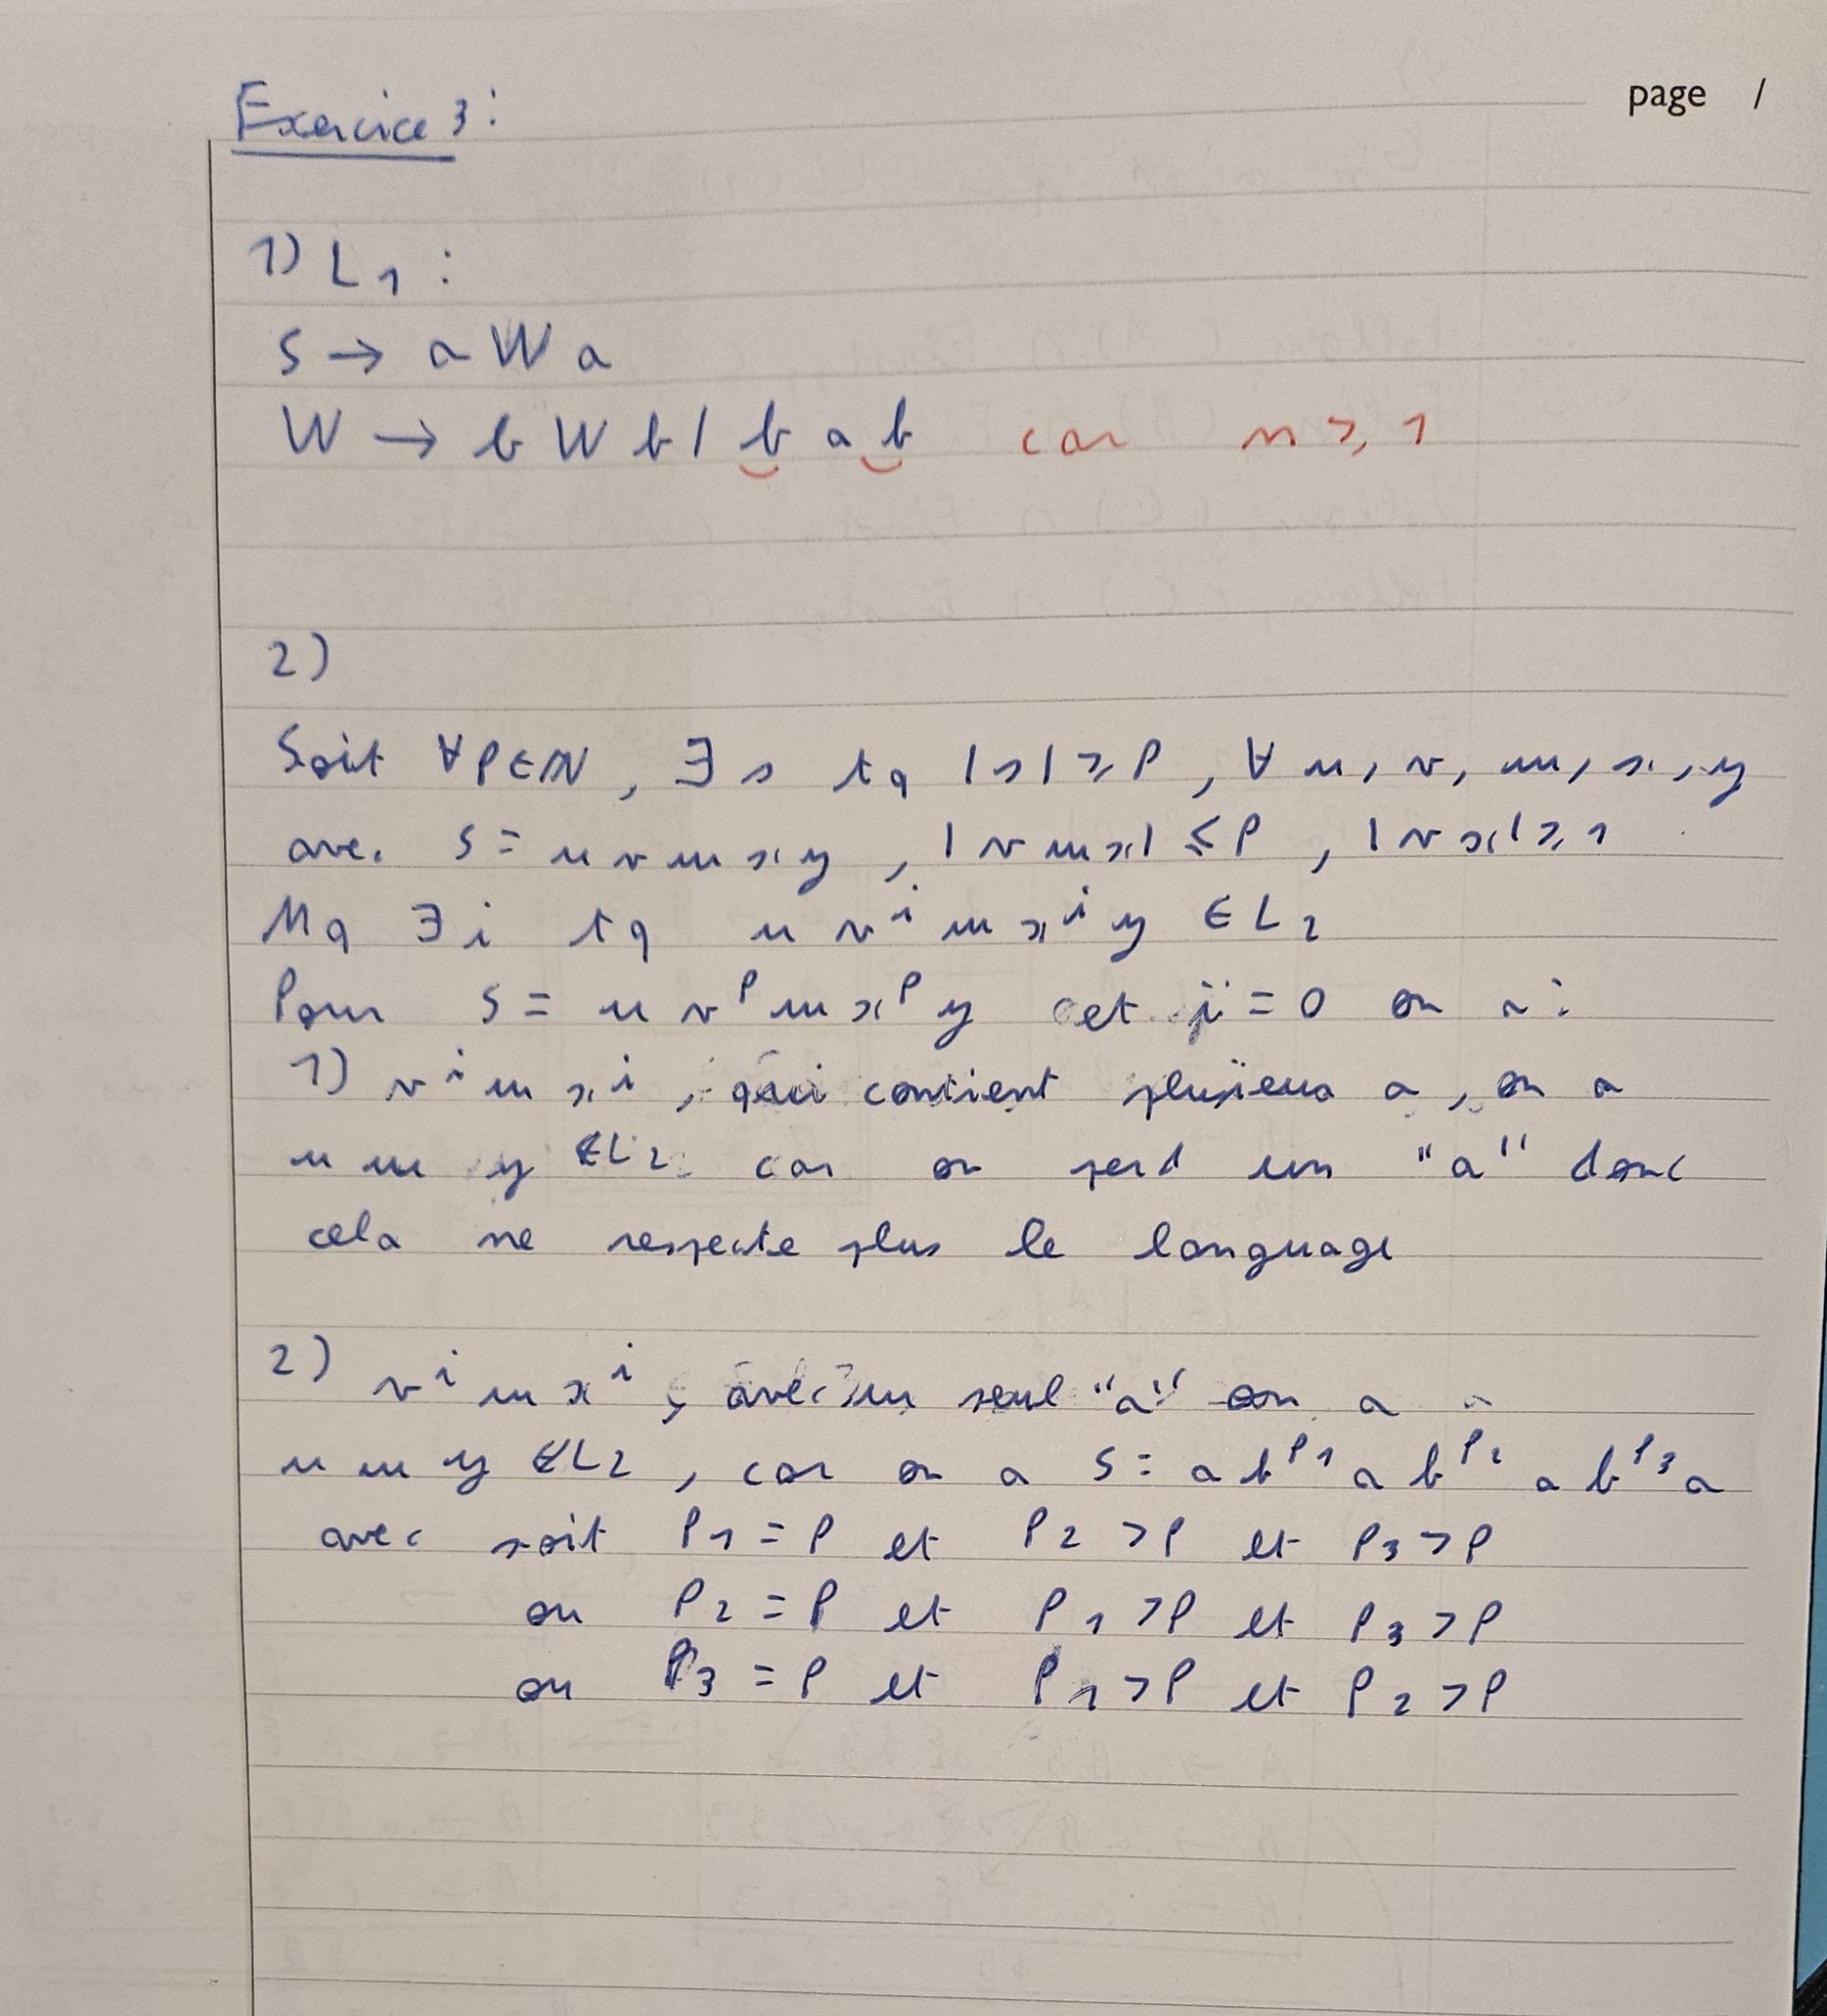 page /
Exercice 3 :
1) L₁ :
S → a W a
W → b W b / b a b car n ⩾ 1
2)
Soit ∀ P ∈ ℕ, ∃ s tq |s| ⩾ P, ∀ u, v, w, x, y
avec S = u v w x y, |v w x| ≤ P, |v x| ⩾ 1
Mq ∃ i tq u vⁱ w xⁱ y ∈ L₂
Pour S = u vᴾ w xᴾ y et i = 0 on a :
1) vⁱ w xⁱ, qui contient plusieurs a, on a
u w y ∉ L₂ car on perd un "a" donc
cela ne respecte plus le language
2) vⁱ w xⁱ, avec un seul "a" on a
u w y ∉ L₂, car on a S = a b^P₁ a b^P₂ a b^P₃ a
avec soit P₁ = P et P₂ > P et P₃ > P
ou P₂ = P et P₁ > P et P₃ > P
ou P₃ = P et P₁ > P et P₂ > P